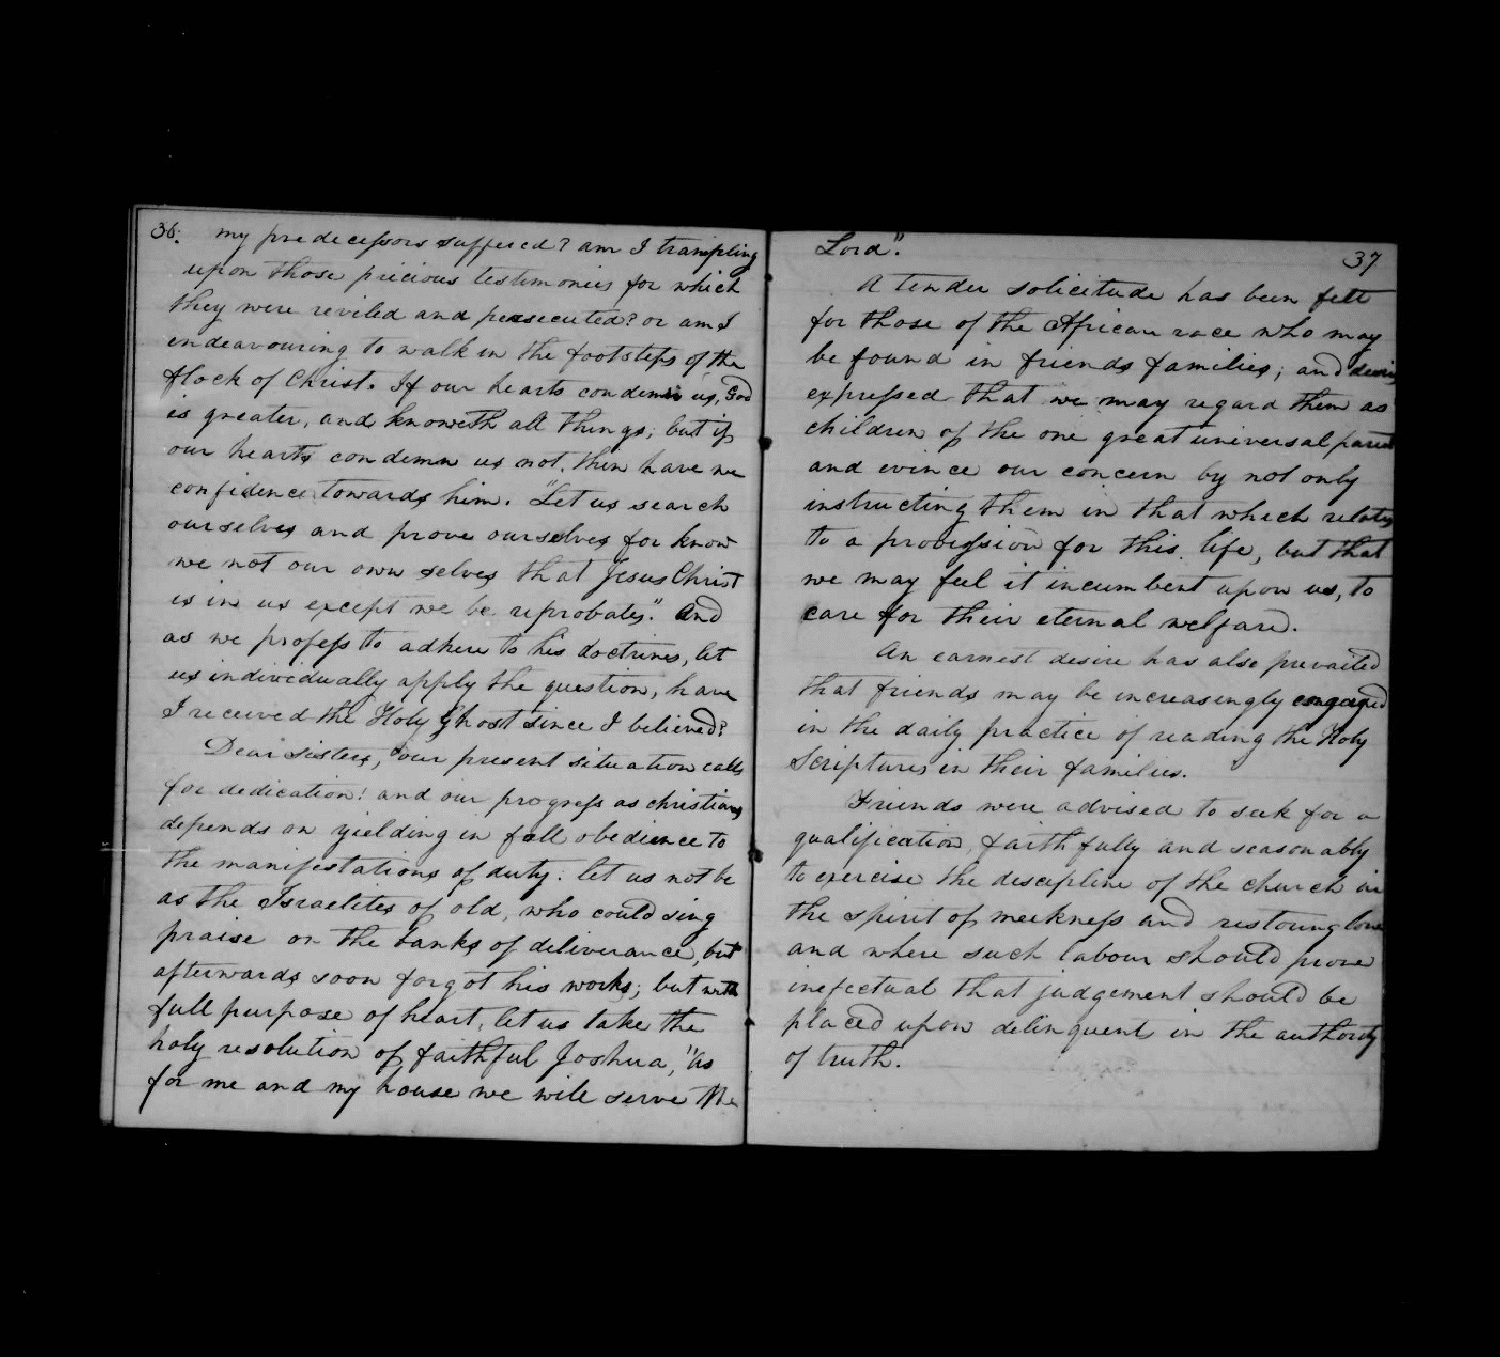 36.
my predecessors suffered? am I trampling
upon those precious testimonies for which
they were reviled and persecuted? or am I
indeavouring to walk in the footsteps of the
flock of Christ. If our hearts condemn us, God
is greater, and knoweth all things; but if
our hearts condemn us not, then have we
confidence towards him. "Let us search
ourselves and prove ourselves for know
we not our own selves that Jesus Christ
is in us except we be reprobates." And
as we profess to adhere to his doctrines, let
us individually apply the question, have
I received the Holy Ghost since I believed?
Dear Sisters, our present situation calls
for dedication! and our progress as christians
depends on yielding in full obedience to
the manifestations of duty: let us not be
as the Israelites of old, who could sing
praise on the banks of deliverance, but
afterwards soon forgot his works; but with
full purpose of heart, let us take the
holy resolution of faithful Joshua, "As
for me and my house we will serve the
37
Lord".
A tender solicitude has been felt
for those of the African race who may
be found in friends families; and desires
expressed that we may regard them as
children of the one great universal parent
and evince our concern by not only
instructing them in that which relates
to a provission for this life, but that
we may feel it incumbent upon us, to
care for their eternal welfare.
An earnest desire has also prevailed
that friends may be increasingly engaged
in the daily practice of reading the Holy
Scriptures in their families.
Friends were advised to seek for a
qualification, faithfully and seasonably
to exercise the discipline of the church in
the spirit of meekness and restoring love
and where such labour should prove
inefectual that judgement should be
placed upon delinquent in the authority
of truth.